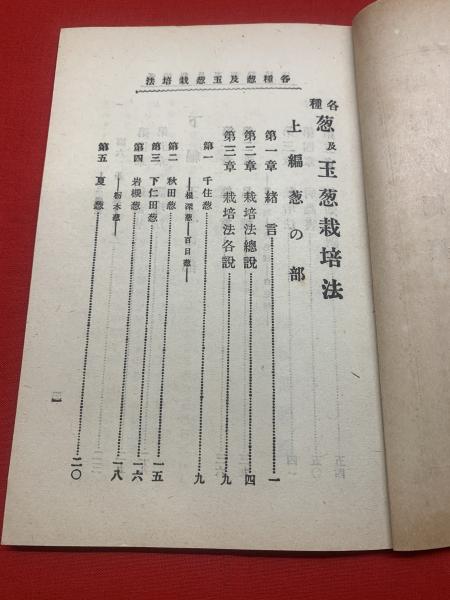 各種葱及玉葱栽培法
各種葱及玉葱栽培法
上編 葱の部
第一章 緒言……一
第二章 栽培法總說……四
第三章 栽培法各說……九
第一 千住葱……九
―根深葱―百日葱―
第二 秋田葱……一五
第三 下仁田葱……一六
第四 岩槻葱……一八
―栃木葱―
第五 夏葱……二〇
[一]